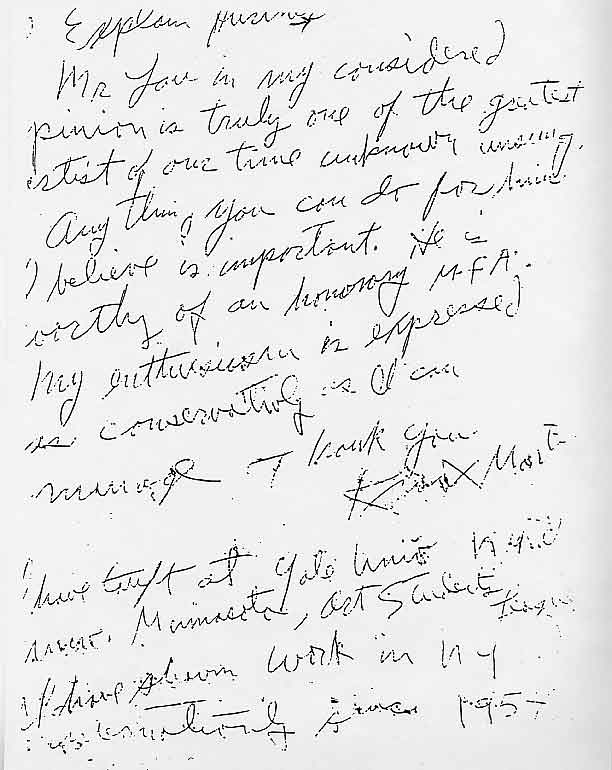 Explain
Mr You in my considered
pinion is truly one of the greatest
rtist of our time unknown unsung.
Any thing you can do for him
I believe is important. He is
worthy of an honorary M-F A.
My enthusiasm is expressed
as conservatively as I can
manage Thank you
Knox Mart
I have taught at Yale Univ N.Y.U
Minnesota, Art Students League
I have shown work in N Y
since 1957